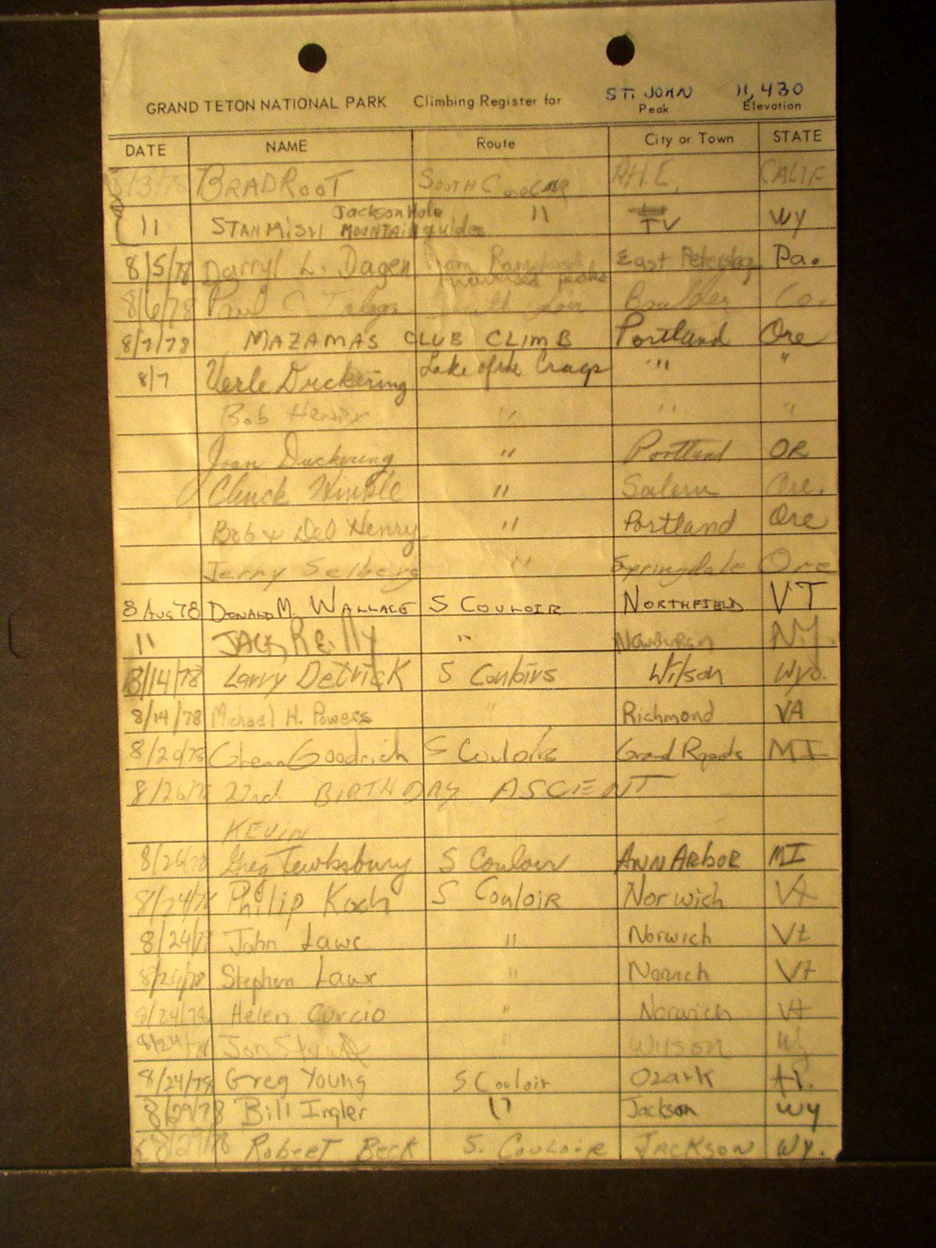 GRAND TETON NATIONAL PARK Climbing Register for ST. JOHN 11,430
Peak Elevation
DATE NAME Route City or Town STATE
8/3/78 BRAD ROOT SOUTH R.H.E. CALIF
" STAN MISH Jackson Hole MOUNTAIN guides " TV WY
8/5/78 Darryl L. Dagen East Petersburg Pa.
8/6/78 Paul Boulder Co.
8/7/78 MAZAMAS CLUB CLIMB Portland Ore
8/7 Verle Duckering Lake of the Crags " "
Bob " " "
Joan Duckering " Portland OR
Chuck " Salem Ore.
Bob & Deb Henry " Portland Ore
Jerry Selbers " Springdale Ore
8 AUG 78 DONALD M. WALLACE S COULOIR NORTHFIELD VT
" JACK REILLY " Newburgh N.Y.
8/14/78 Larry Detrick S Couloirs Wilson Wyo.
8/14/78 Michael H. Powers " Richmond VA
8/20/78 Goodrich S Couloir Grand Rapids MI
8/26/78 22nd BIRTHDAY ASCENT
KEVIN
8/26/78 Greg Tewksbury S Couloir ANN ARBOR MI
8/24/78 Philip Koch S Couloir Norwich Vt
8/24/78 John Laws " Norwich Vt
Stephen Laws " Norwich Vt
8/24/78 Helen Curcio " Norwich Vt
8/24/78 Jon " Wilson Wy
8/24/78 Greg Young S Couloir Ozark
8/29/78 Bill Ingler " Jackson WY
8/29/78 Robert Beck S. Couloir JACKSON WY.